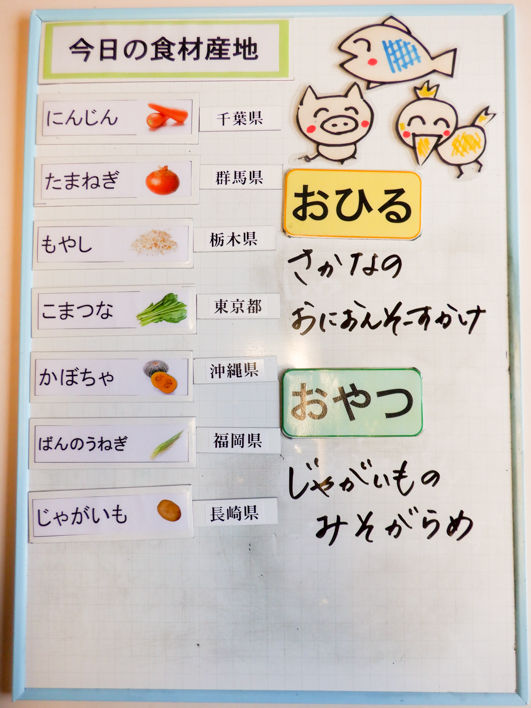 今日の食材産地
にんじん 千葉県
たまねぎ 群馬県
もやし 栃木県
こまつな 東京都
かぼちゃ 沖縄県
ばんのうねぎ 福岡県
じゃがいも 長崎県
おひる
さかなの
おにおんそーすかけ
おやつ
じゃがいもの
みそがらめ